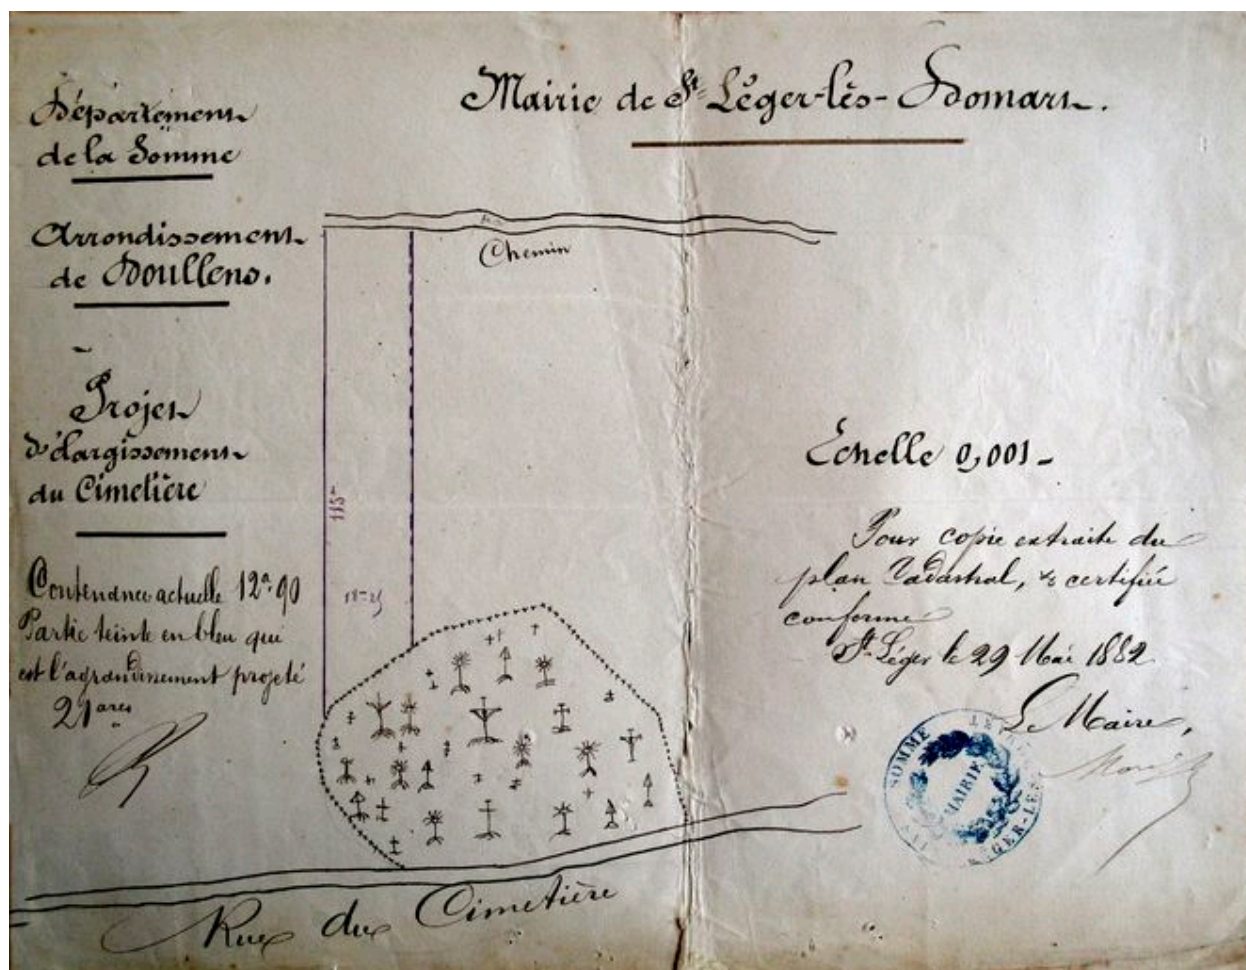 Mairie de St Léger-lès-Domart.
Département
de la Somme
Arrondissement
de Doullens.
Projet
d'élargissement
du Cimetière
Contenance actuelle 12a.90
Partie teinte en bleu qui
est l'agrandissement projeté
21 ares
Chemin
115m
18m25
Echelle 0,001
Pour copie extraite du
plan Cadastral, & certifiée
conforme
St Léger le 29 Mai 1882
Le Maire,
SOMME
MAIRIE
Rue du Cimetière